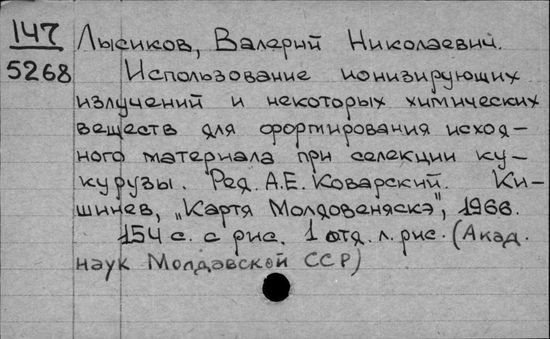 147 Лысиков, Валерий Николаевич.
5268 Использование ионизирующих
излучений и некоторых химических
веществ для формирования исход-
ного материала при селекции ку-
курузы. Ред. А.Е. Коварский. Ки-
шинев, „Картя Молдовеняскэ", 1966.
154 с. с рис. 1 отд. л. рис. (Акад.
наук Молдавской ССР)